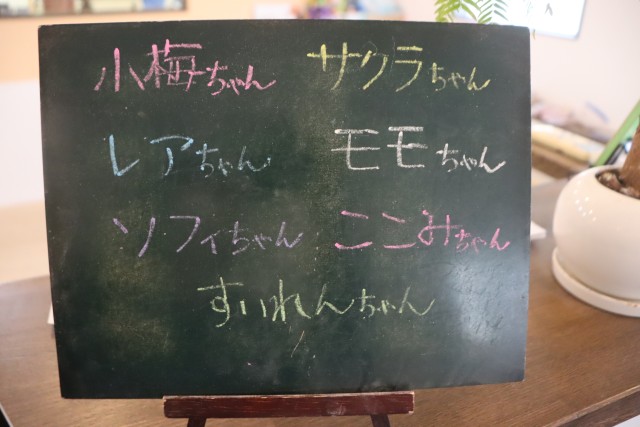 小梅ちゃん サクラちゃん
レアちゃん モモちゃん
ソフィちゃん ここみちゃん
すいれんちゃん